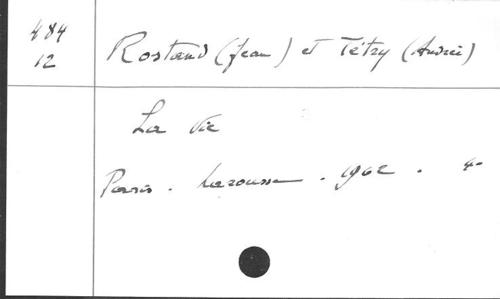 484
12
Rostand (Jean) et Tétry (Andrée)
La Vie
Paris. Larousse. 1962. 4°